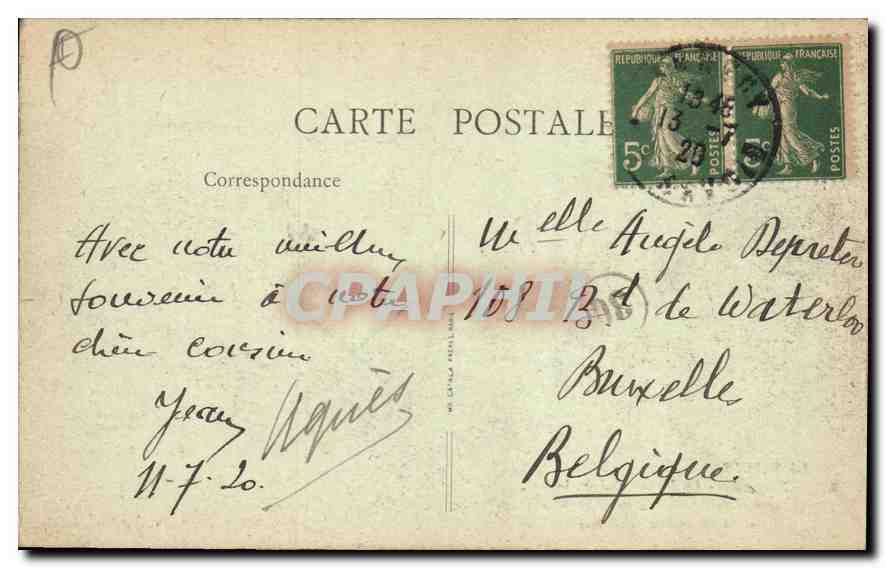 CARTE POSTALE
REPUBLIQUE FRANÇAISE
REPUBLIQUE FRANÇAISE
5c POSTES
5c POSTES
13-45
13-7
20
Correspondance
Avec notre meilleur
souvenir à notre
chère cousine
Jean Agnès
11-7-20.
CPAPHIL
Melle Angèle Depreter
108 Bd de Waterloo
Bruxelles
Belgique